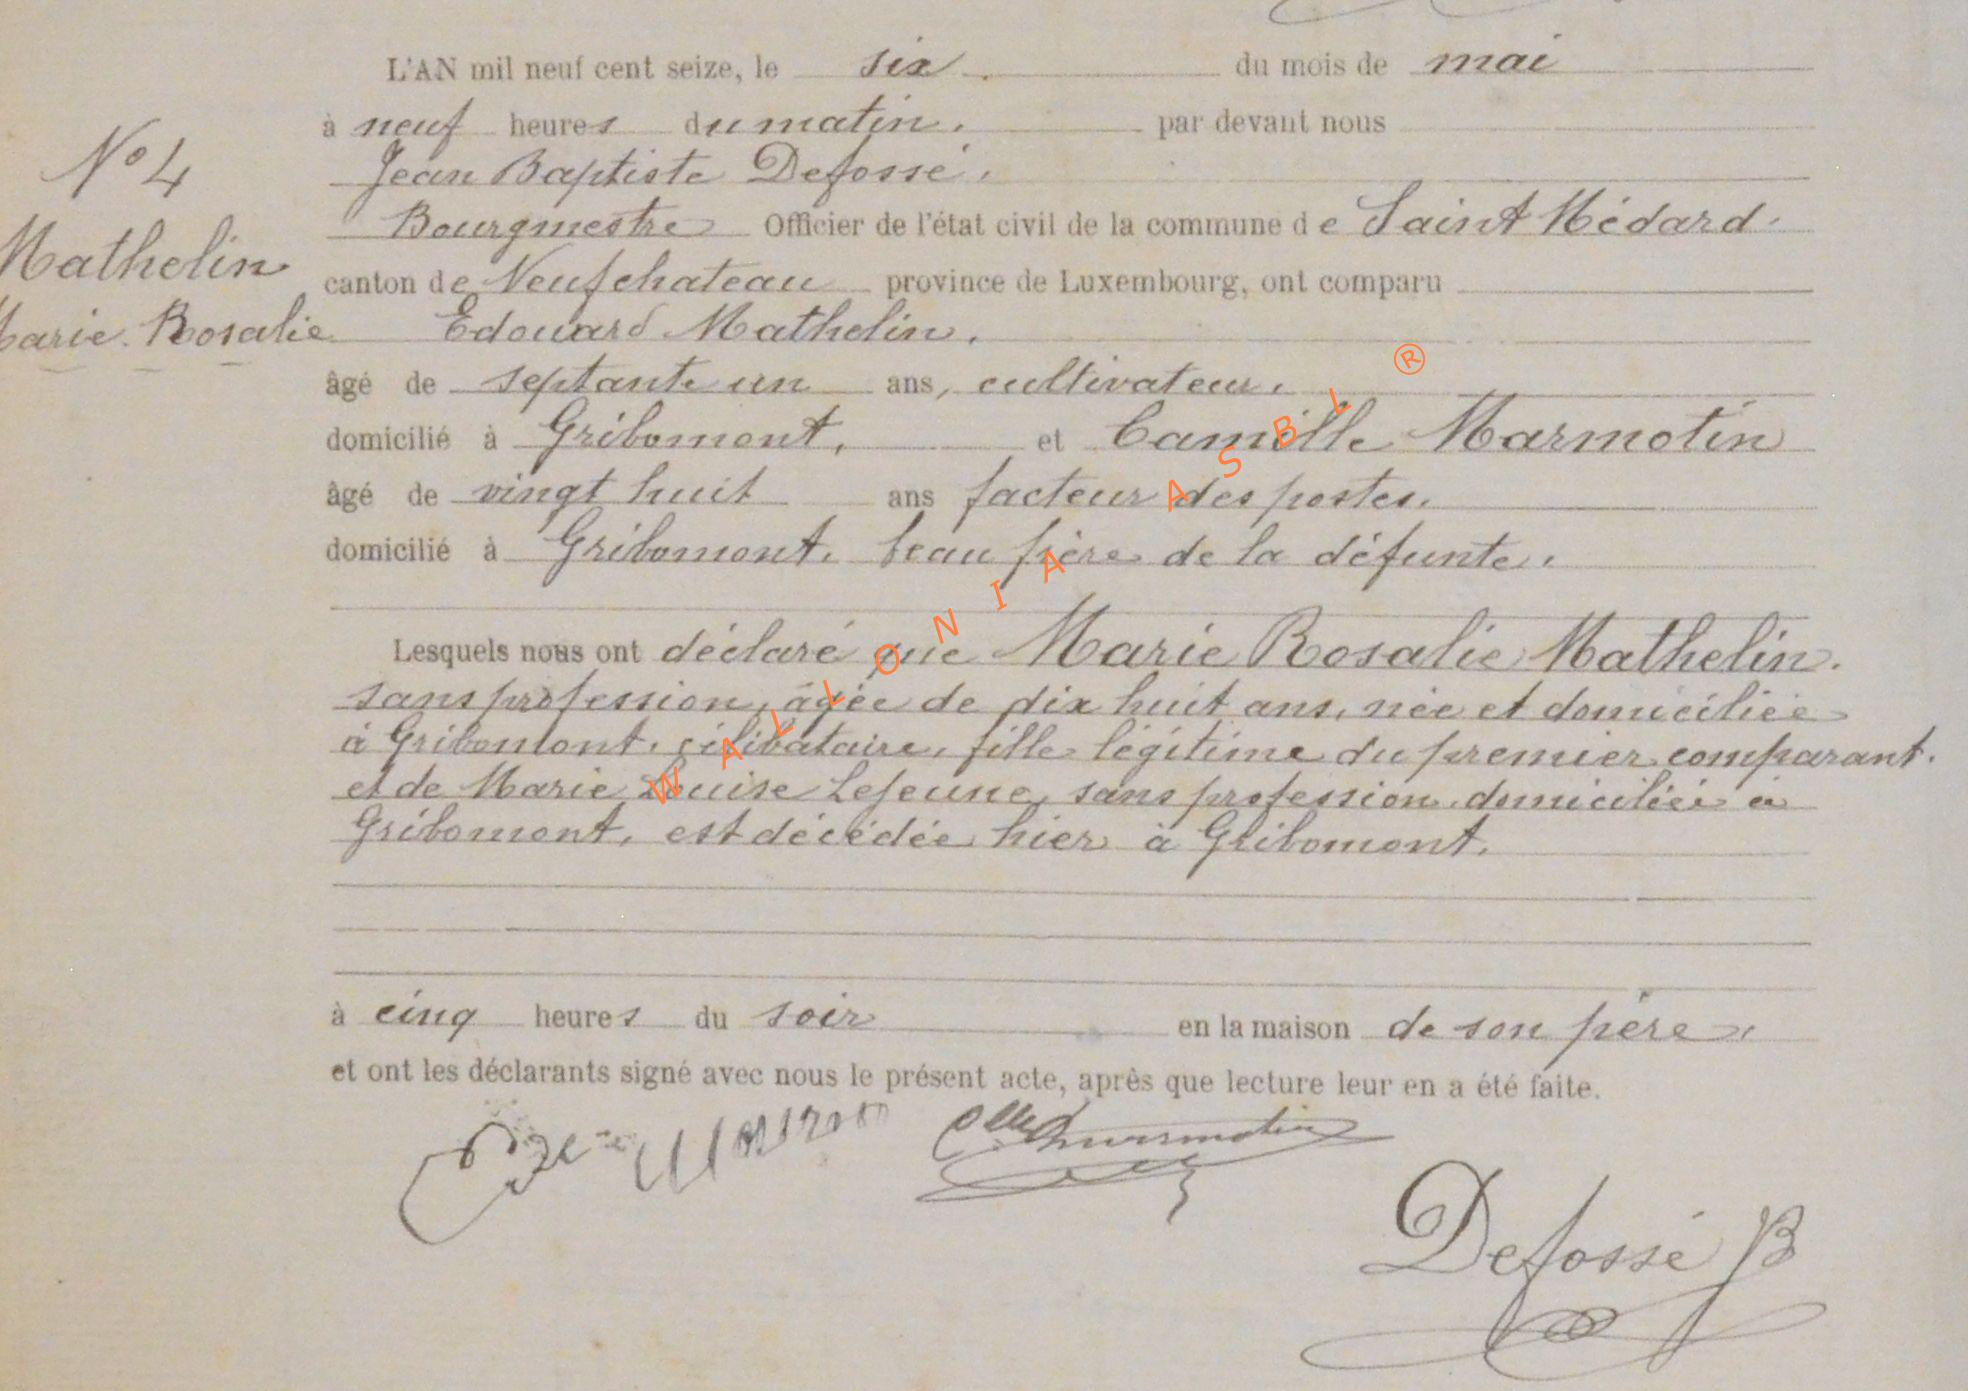 L'AN mil neuf cent seize, le six du mois de mai
à neuf heures du matin. par devant nous
Jean Baptiste Defossé,
Bourgmestre Officier de l'état civil de la commune de Saint Médard.
canton de Neufchateau province de Luxembourg, ont comparu
Edouard Mathelin.
âgé de septante un ans, cultivateur.
domicilié à Gribomont, et Camille Marmotin
âgé de vingt huit ans facteur des postes.
domicilié à Gribomont. beau frère de la défunte.
N° 4
Mathelin
Marie Rosalie
Lesquels nous ont déclaré que Marie Rosalie Mathelin.
sans profession, âgée de dix huit ans, née et domiciliée
à Gribomont, célibataire, fille légitime du premier comparant.
et de Marie Louise Lejeune, sans profession, domiciliée à
Gribomont, est décédée hier à Gribomont.
à cinq heures du soir en la maison de son père,
et ont les déclarants signé avec nous le présent acte, après que lecture leur en a été faite.
Marmotin
Defossé JB
WALLONIA ASBL ®